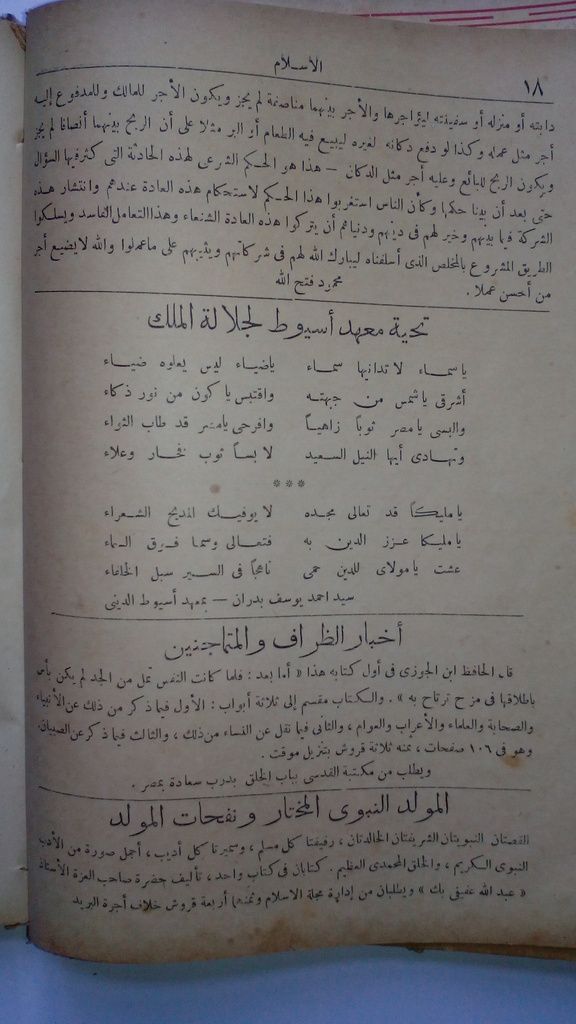 ١٨
الاسلام
دابته أو منزله أو سفينته ليؤاجرها والأجر بينهما مناصفة لم يجز ويكون الأجر للمالك وللمدفوع إليه
أجر مثل عمله وكذا لو دفع دكانه لغيره ليبيع فيه الطعام أو البر مثلا على أن الربح بينهما أنصافا لم يجز
ويكون الربح للبائع وعليه أجر مثل الدكان — هذا هو الحكم الشرعى لهذه الحادثة التى كثر فيها السؤال
حتى بعد أن بينا حكمها وكأن الناس استغربوا هذا الحكم لاستحكام هذه العادة عندهم وانتشار هذه
الشركة فيما بينهم وخير لهم فى دينهم ودنياهم أن يتركوا هذه العادة الشنعاء وهذا التعامل الفاسد ويسلكوا
الطريق المشروع بالمخلص الذى أسلفناه ليبارك الله لهم فى شركاتهم ويثيبهم على ما عملوا والله لا يضيع أجر
من أحسن عملا .
محمود فتح الله
تحية معهد أسيوط لجلالة الملك
يا سماء لا تدانيها سماء يا ضياء ليس يعلوه ضياء
أشرقى يا شمس من جبهته واقتبس يا كون من نور ذكاء
والبسى يا مصر ثوباً زاهياً وافرحى يا مصر قد طاب الثواء
وتهادى أيها النيل السعيد لا بساً ثوب فخار وعلاء
***
يا مليكاً قد تعالى مجده لا يوفيك المديح الشعراء
يا مليكا عزز الدين به فتعالى وسما فوق السماء
عشت يا مولاى للدين حمى ناهجاً فى السير سبل الخلفاء
سيد احمد يوسف بدران — بمعهد أسيوط الدينى
أخبار الظراف والمتماجنين
قال الحافظ ابن الجوزى فى أول كتابه هذا « أما بعد : فلما كانت النفس تمل من الجد لم يكن بأس
باطلاقها فى مزح ترتاح به » . والكتاب مقسم إلى ثلاثة أبواب : الأول فيما ذكر من ذلك عن الأنبياء
والصحابة والعلماء والأعراب والعوام ، والثانى فيما نقل عن النساء من ذلك ، والثالث فيما ذكر عن الصبيان.
وهو فى ١٠٦ صفحات ، ثمنه ثلاثة قروش بتنزيل موقت .
ويطلب من مكتبة القدسى بباب الخلق بدرب سعادة بمصر .
المولد النبوى المختار ونفحات المولد
القصتان النبويتان الشريفتان الخالدتان ، رفيقتا كل مسلم ، وسميرتا كل أديب ، أجمل صورة من الأدب
النبوى الكريم ، والخلق المحمدى العظيم . كتابان فى كتاب واحد ، تأليف حضرة صاحب العزة الأستاذ
« عبد الله عفيفى بك » ويطلبان من إدارة مجلة الاسلام وثمنهما أربعة قروش خلاف أجرة البريد